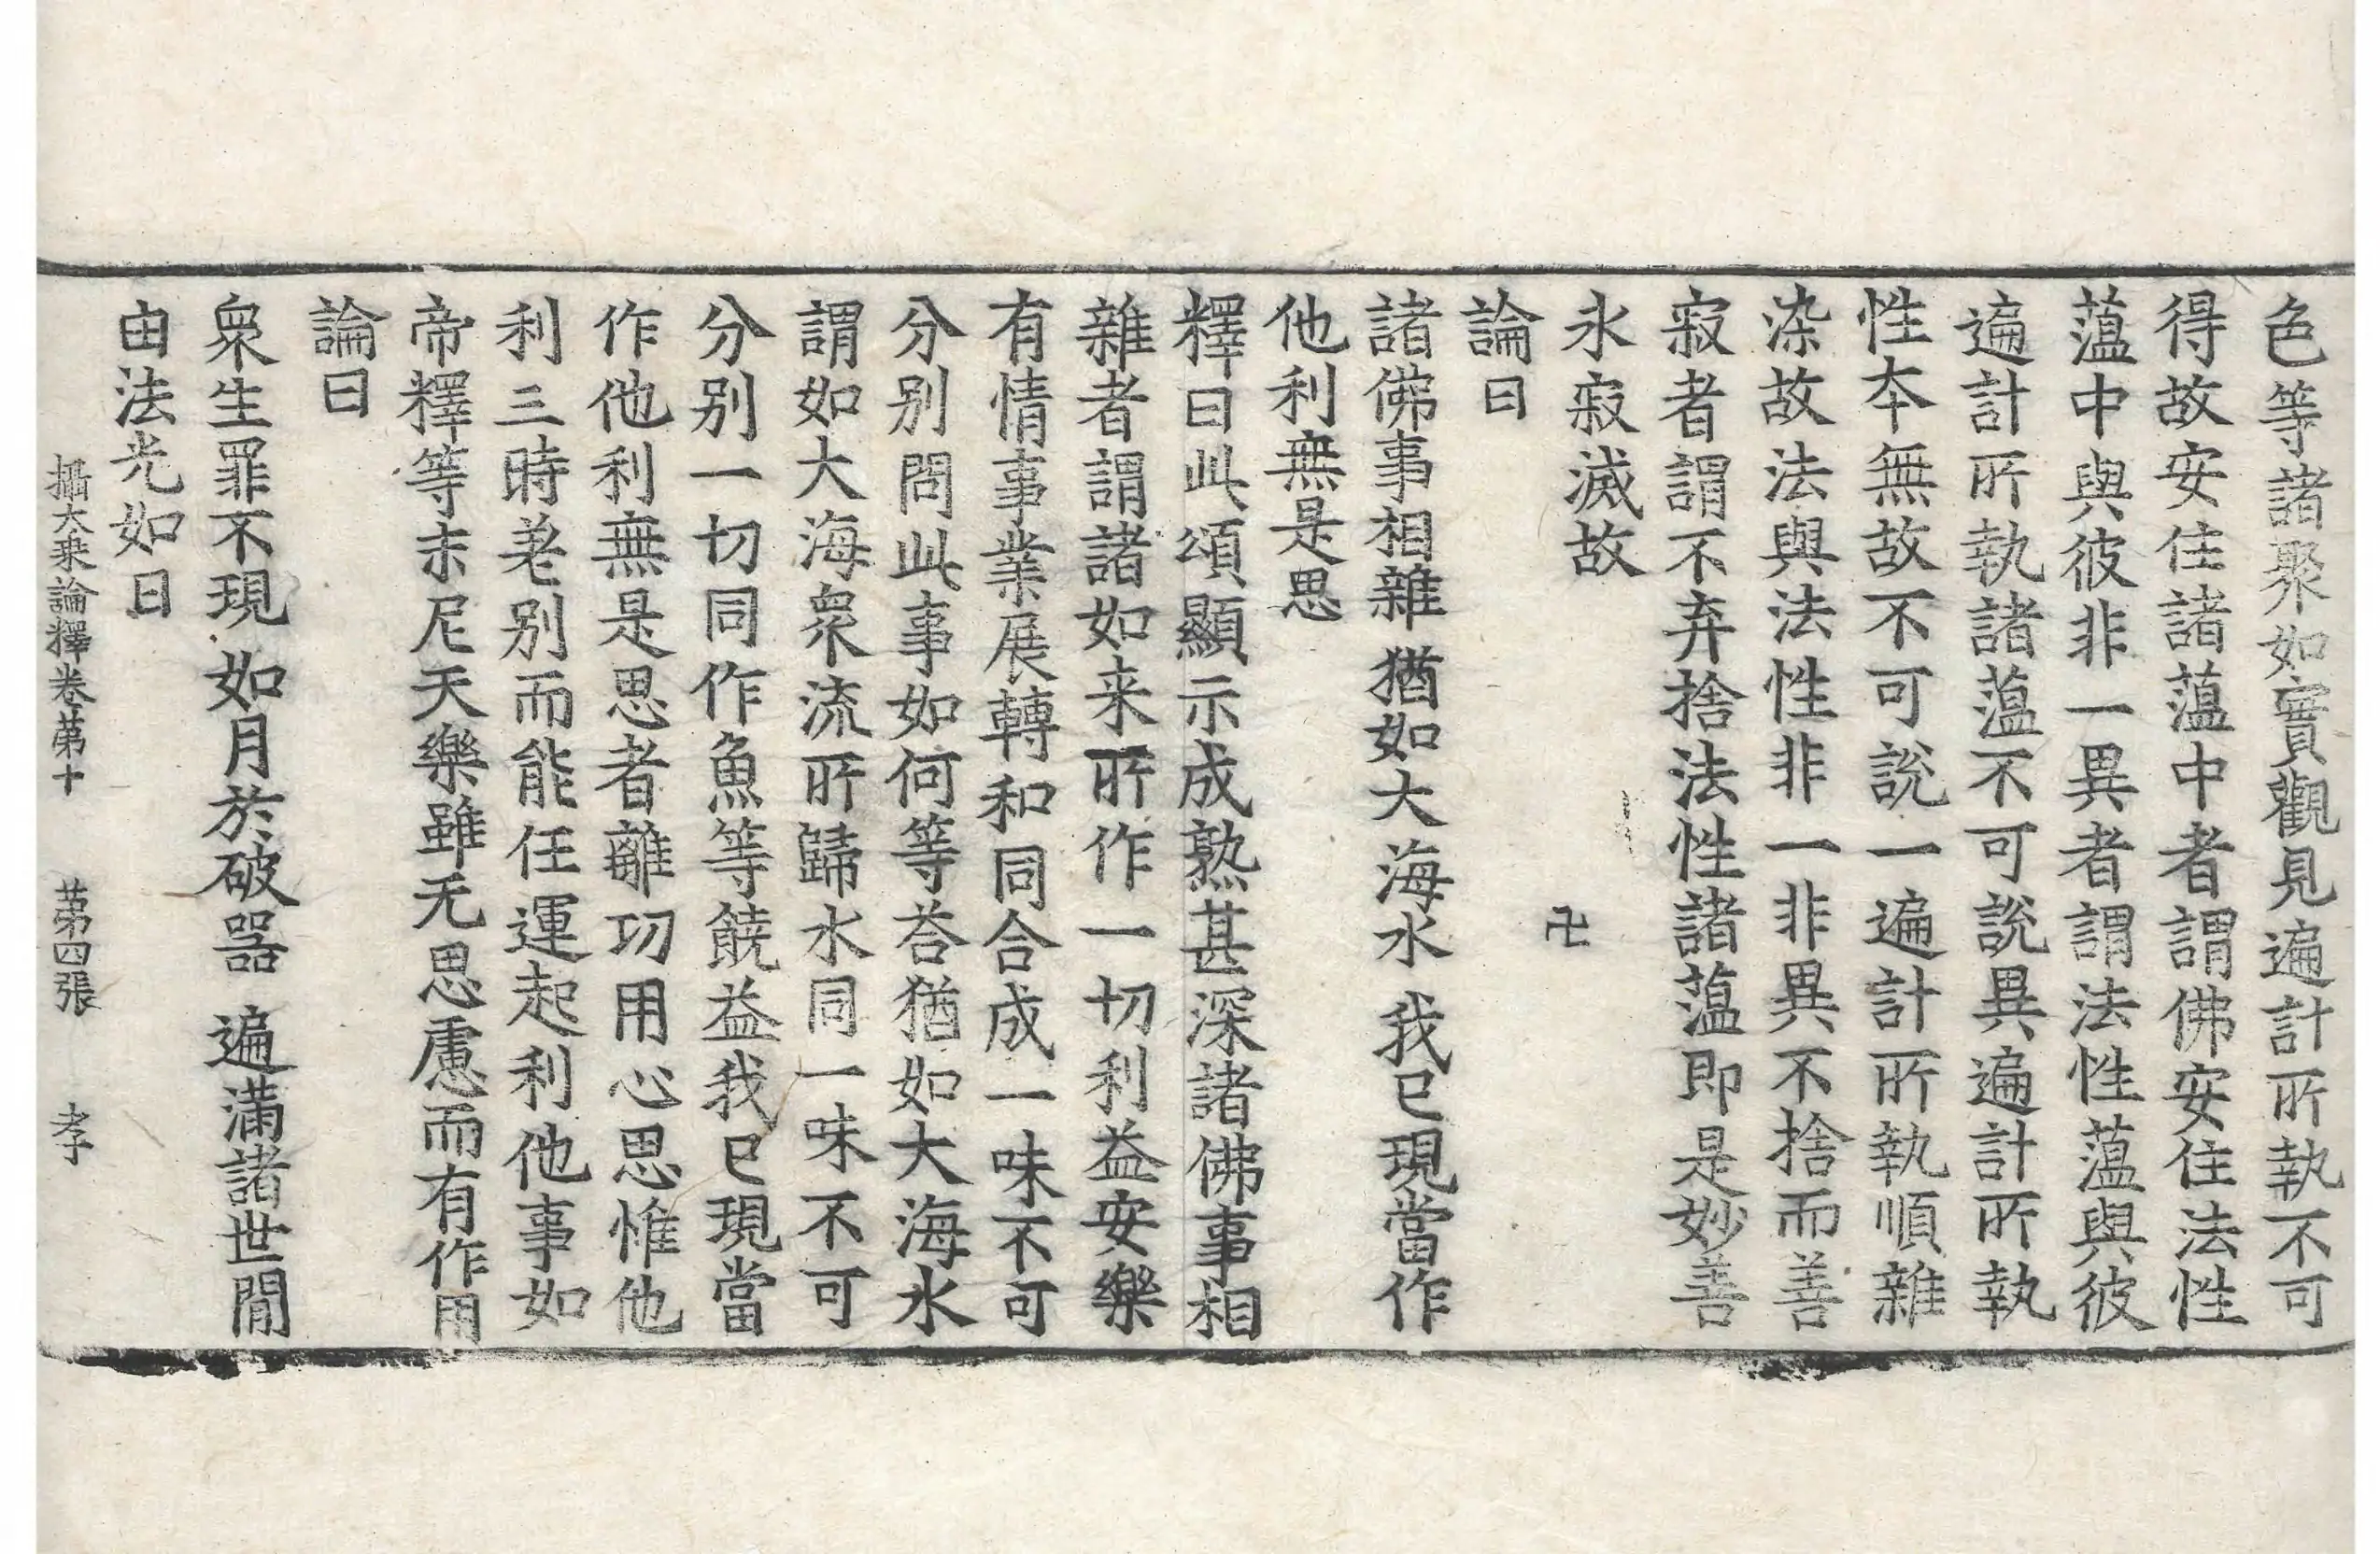 色等諸聚如實觀見遍計所執不可
得故安住諸薀中者謂佛安住法性
薀中與彼非一異者謂法性薀與彼
遍計所執諸薀不可說異遍計所執
性本無故不可說一遍計所執順雜
染故法與法性非一非異不捨而善
寂者謂不弃捨法性諸薀即是妙善
永寂滅故
卍
論曰
諸佛事相雜 猶如大海水 我已現當作
他利無是思
釋曰此頌顯示成熟甚深諸佛事相
雜者謂諸如来所作一切利益安樂
有情事業展轉和同合成一味不可
分別問此事如何等荅猶如大海水
謂如大海衆流所歸水同一味不可
分別一切同作魚等饒益我已現當
作他利無是思者離功用心思惟他
利三時差別而能任運起利他事如
帝釋等末尼天樂雖无思慮而有作用
論曰
衆生罪不現 如月於破器 遍滿諸世間
由法光如日
攝大乗論釋卷第十 第四張 孝